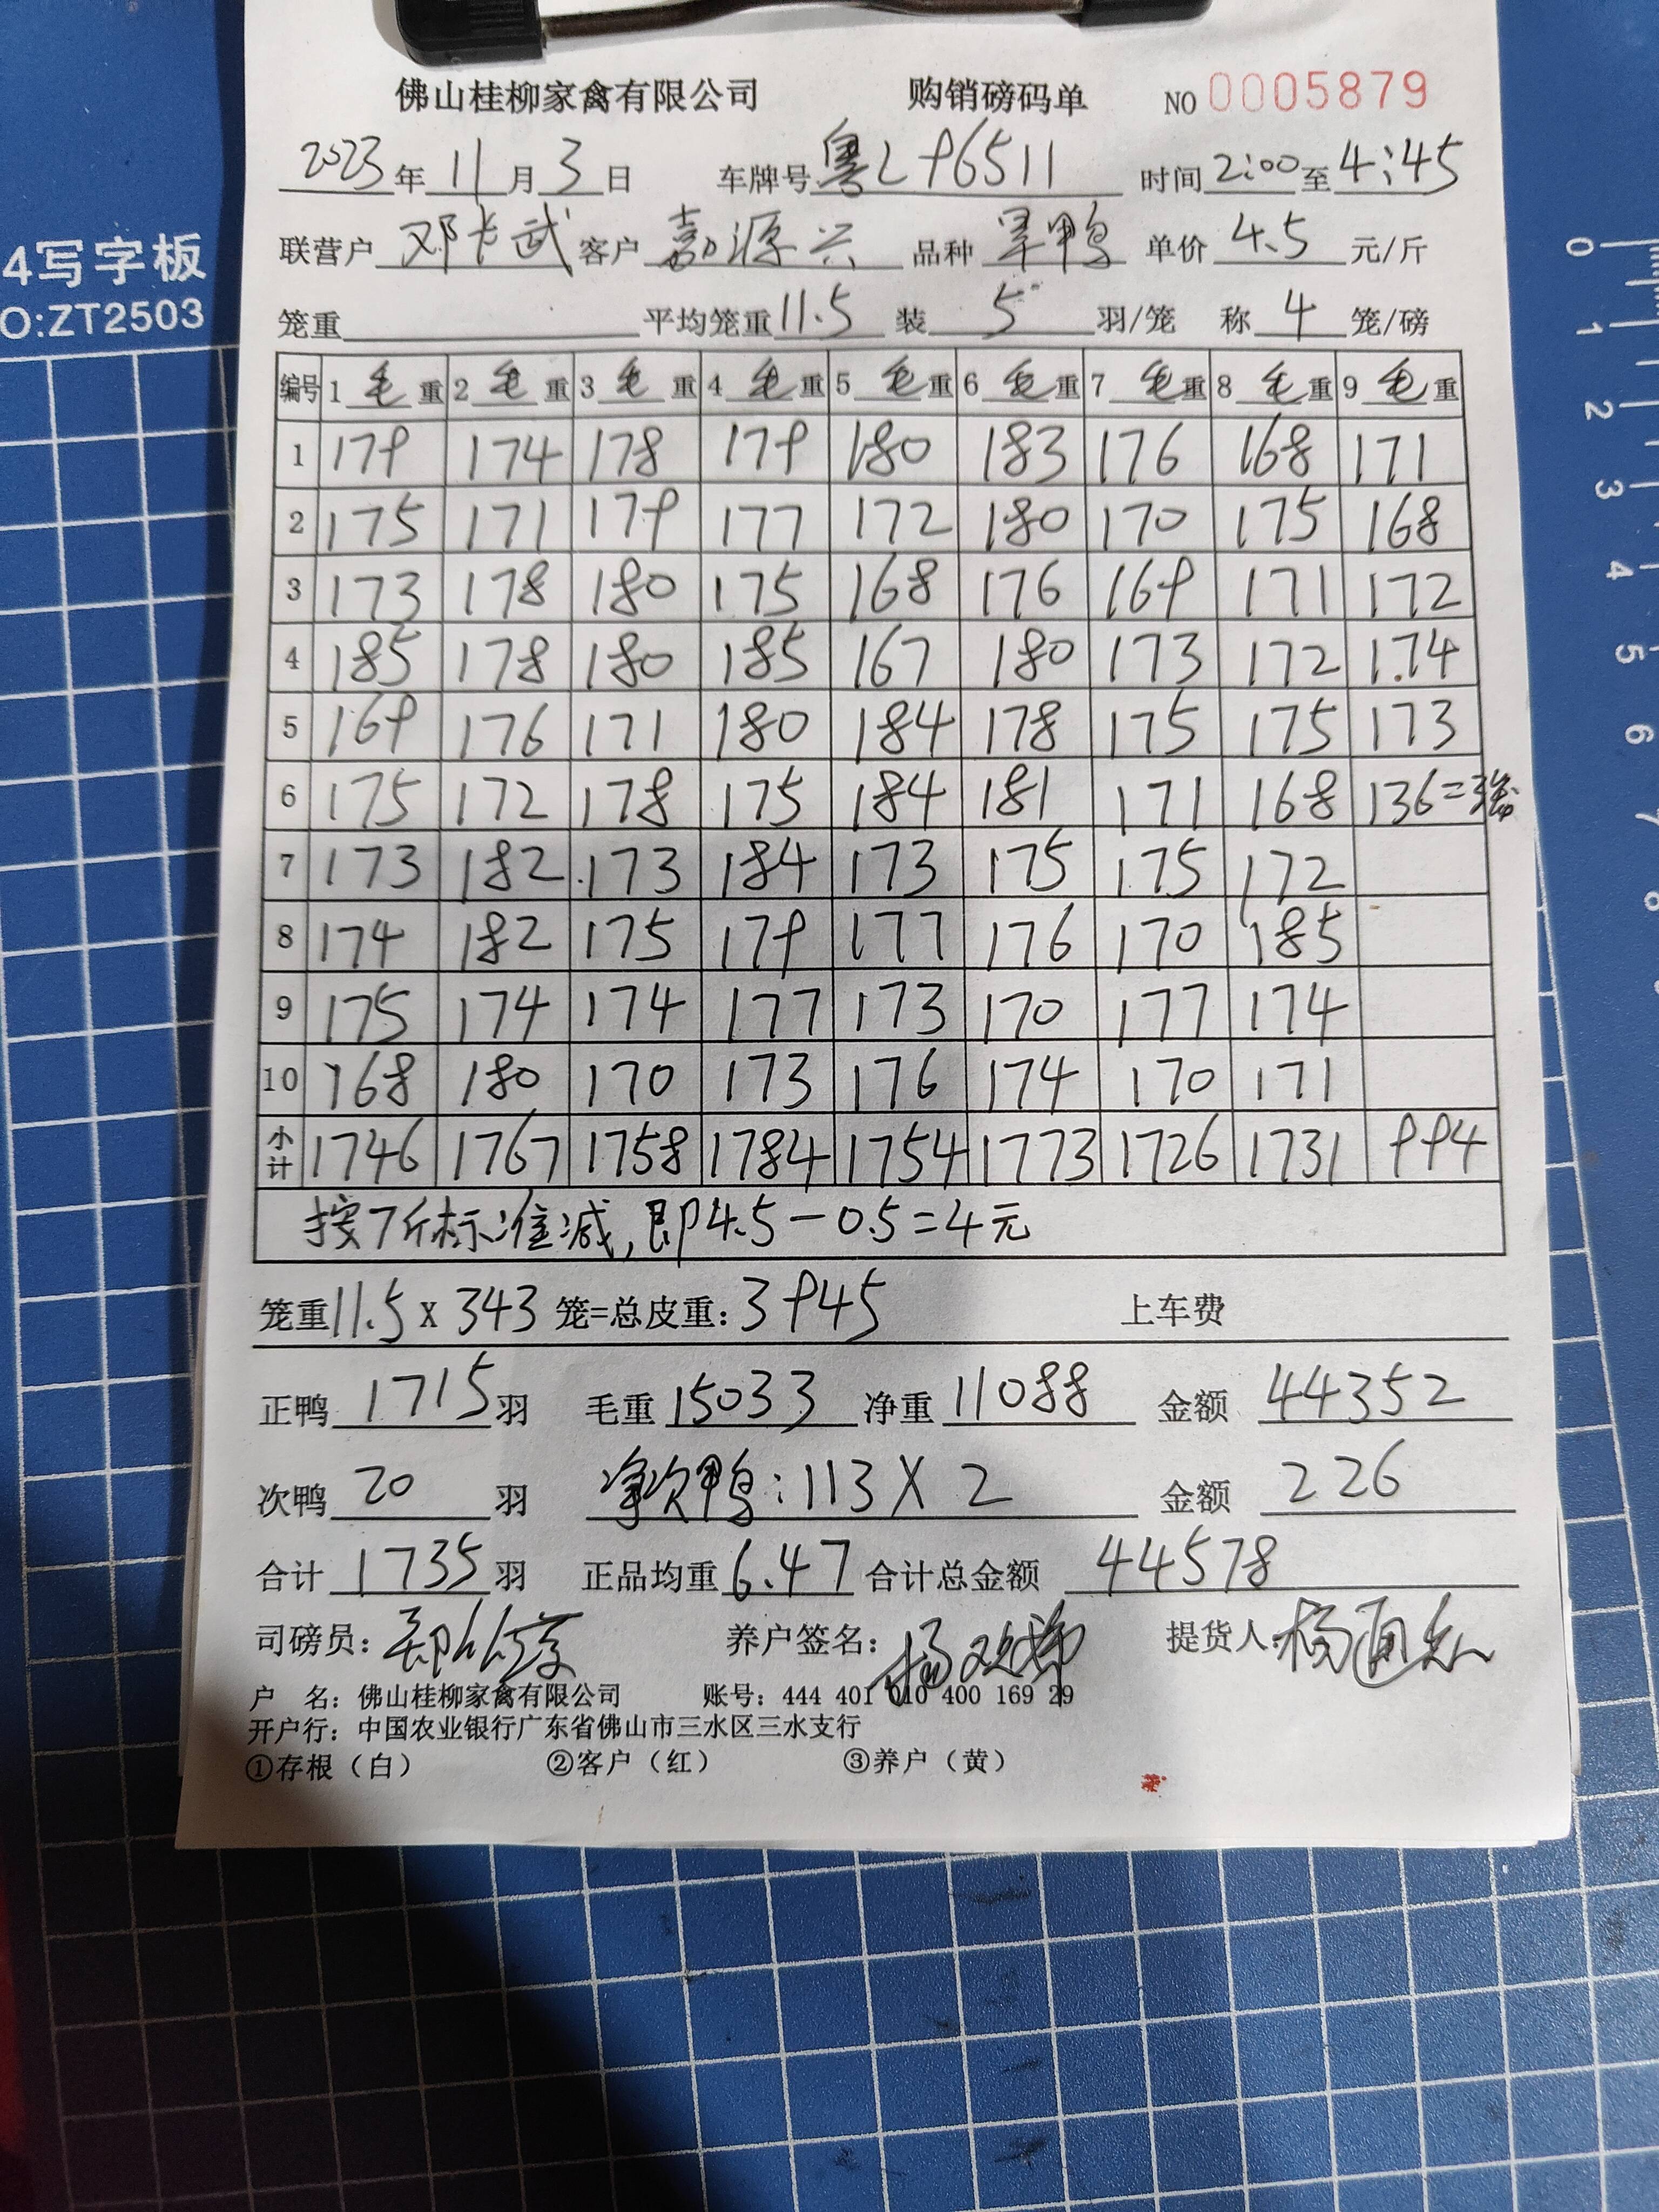 佛山桂柳家禽有限公司 购销磅码单 NO 0005879
2023年11月3日 车牌号 粤L96511 时间 2:00 至 4:45
联营户 邓长武 客户 嘉源兴 品种 旱鸭 单价 4.5 元/斤
笼重 平均笼重 11.5 装 5 羽/笼 称 4 笼/磅
编号 1 毛 重 2 毛 重 3 毛 重 4 毛 重 5 毛 重 6 毛 重 7 毛 重 8 毛 重 9 毛 重
1 179 174 178 179 180 183 176 168 171
2 175 171 179 177 172 180 170 175 168
3 173 178 180 175 168 176 169 171 172
4 185 178 180 185 167 180 173 172 174
5 169 176 171 180 184 178 175 175 173
6 175 172 178 175 184 181 171 168 136=3笼
7 173 182 173 184 173 175 175 172
8 174 182 175 179 177 176 170 185
9 175 174 174 177 173 170 177 174
10 168 180 170 173 176 174 170 171
小计 1746 1767 1758 1784 1754 1773 1726 1731 994
按7斤标准减,即4.5-0.5=4元
笼重 11.5 x 343 笼=总皮重: 3945 上车费
正鸭 1715 羽 毛重 15033 净重 11088 金额 44352
次鸭 20 羽 净次鸭:113X2 金额 226
合计 1735 羽 正品均重 6.47 合计总金额 44578
司磅员: 养户签名: 杨 提货人: 杨
户 名: 佛山桂柳家禽有限公司 账号: 444 401 010 400 169 29
开户行: 中国农业银行广东省佛山市三水区三水支行
①存根（白） ②客户（红） ③养户（黄）
4写字板
O:ZT2503
0
1
2
3
4
5
6
7
8